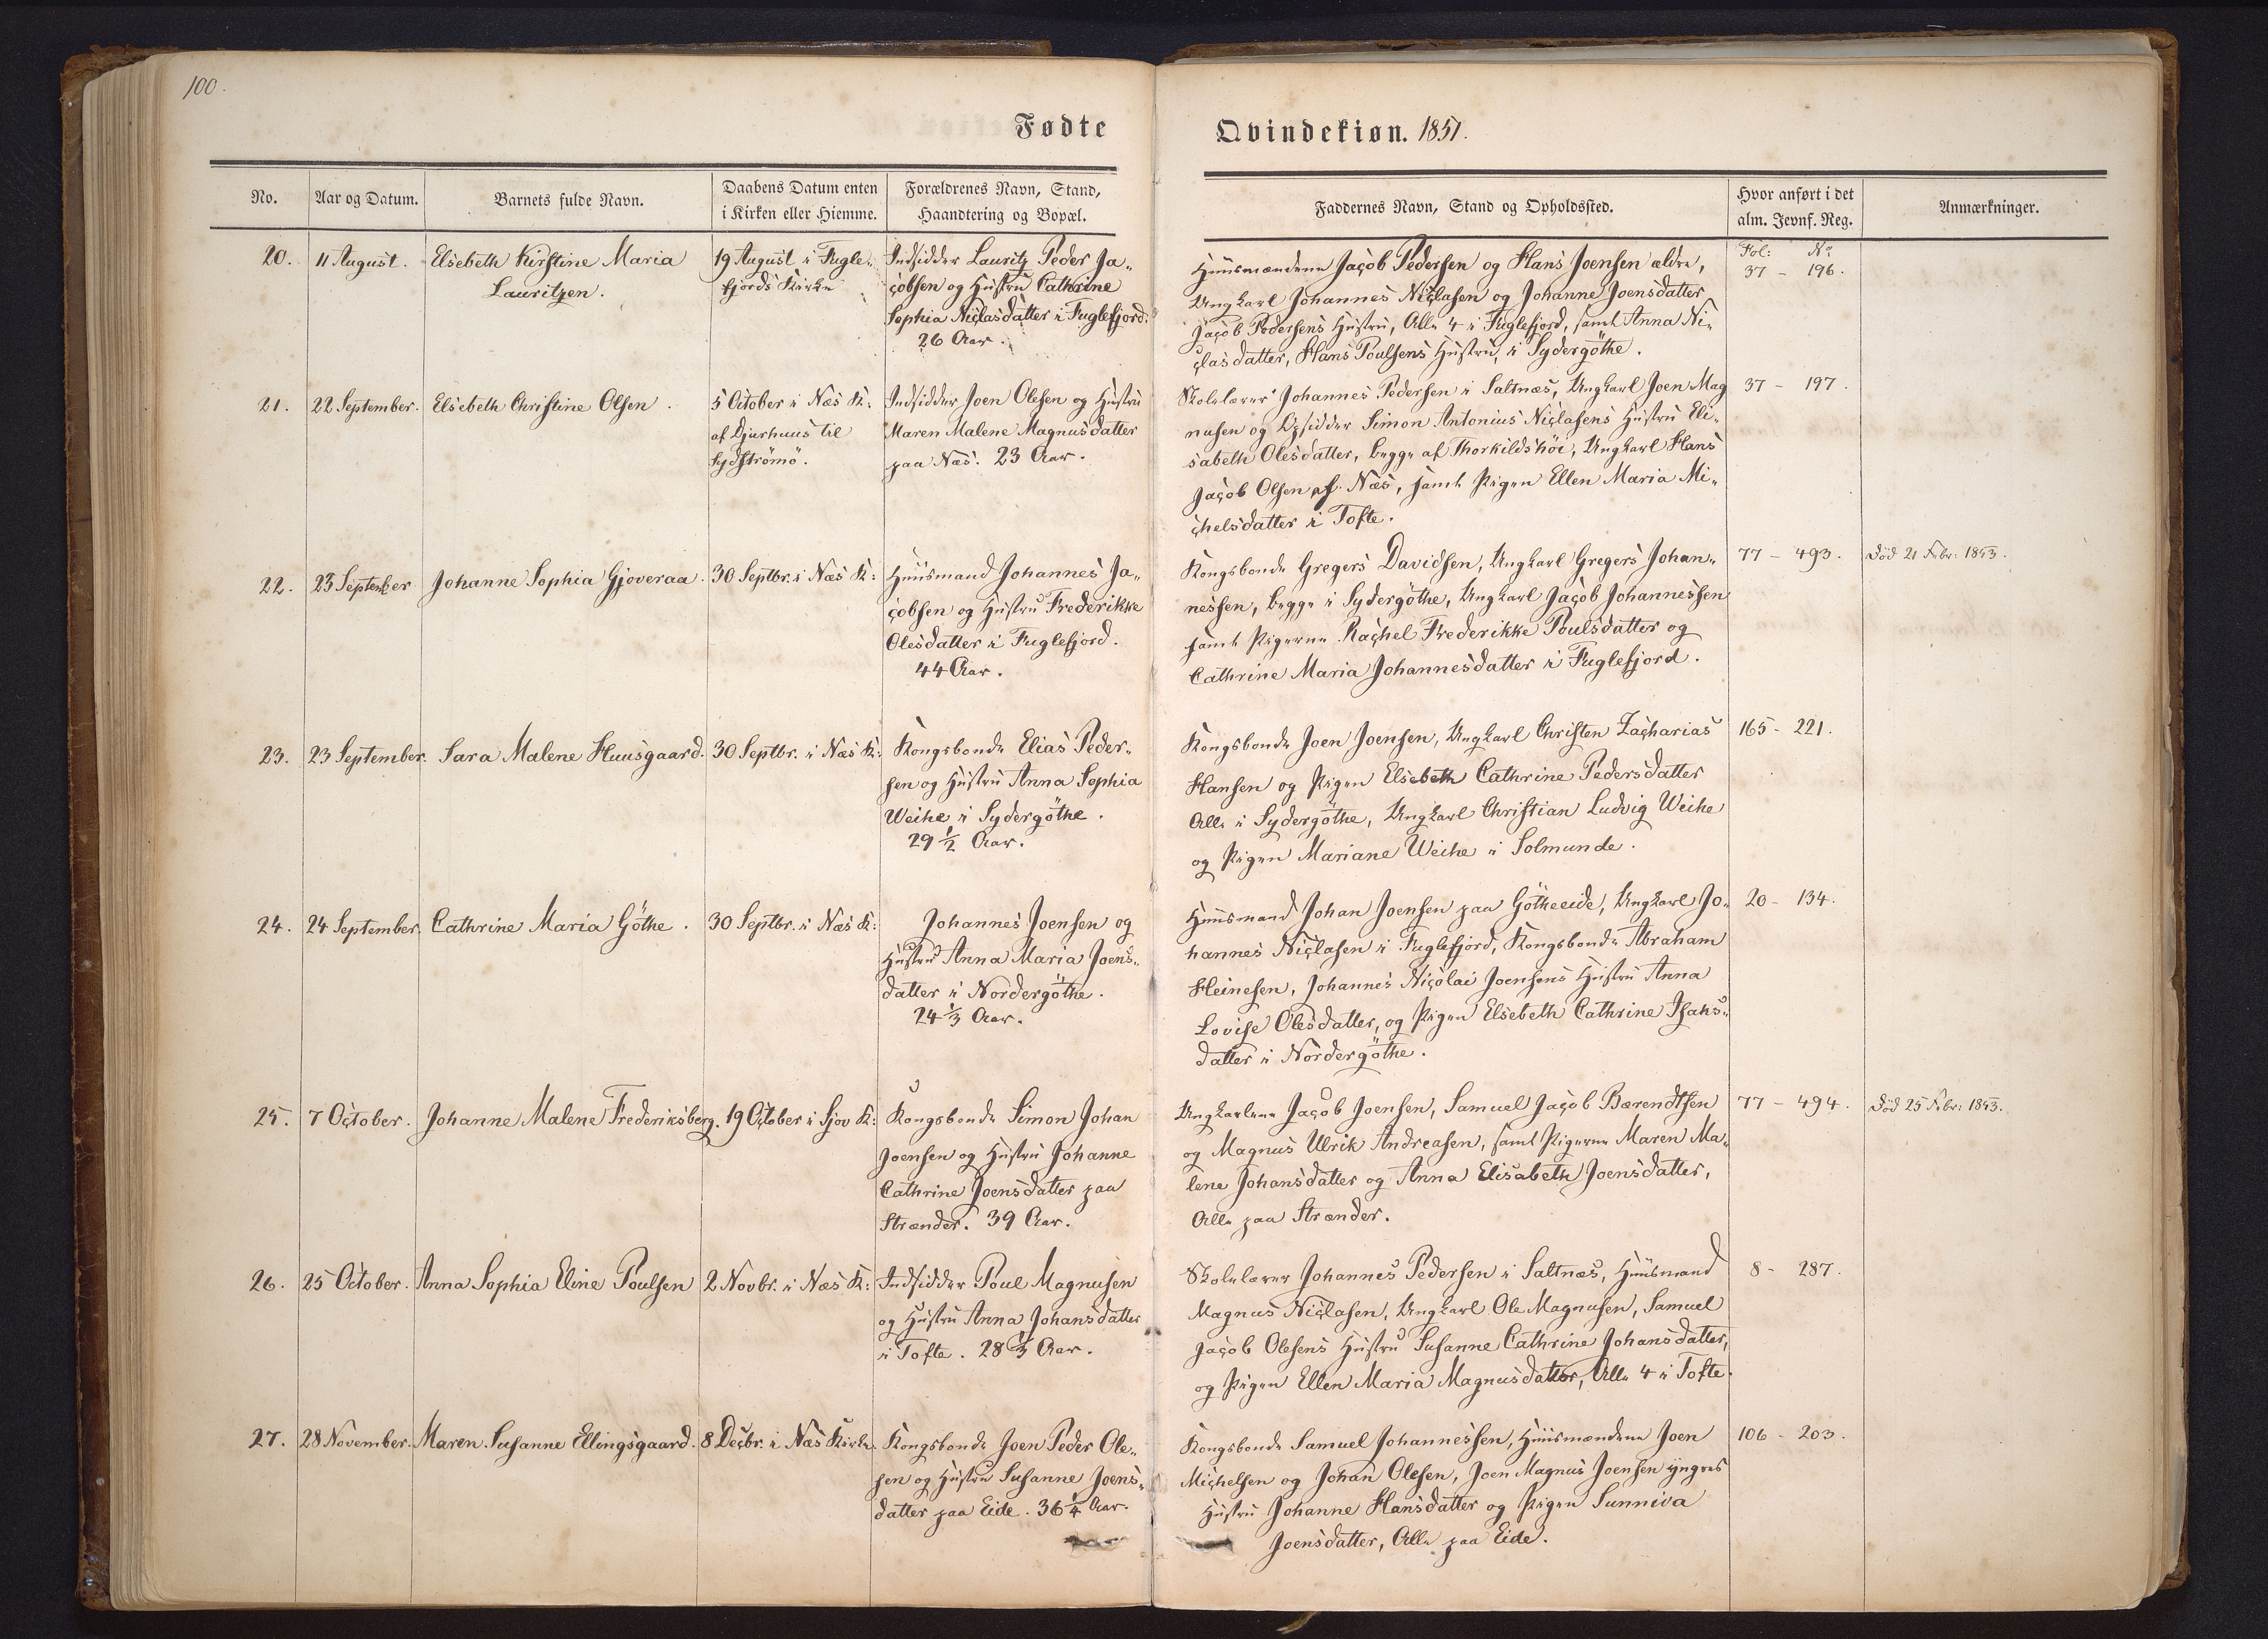 100.
Fødte
Qvindekiøn. 1851.
No.
Aar og Datum.
Barnets fulde Navn.
Daabens Datum enten
i Kirken eller Hiemme.
Forældrenes Navn, Stand,
Haandtering og Bopæl.
Faddernes Navn, Stand og Opholdssted.
Hvor anført i det
alm. Jevnf. Reg.
Anmærkninger.
20.
11 August.
Elsebeth Kirstine Maria
Lauritzen.
19 August i Fugle-
fjords Kirke
Indsidder Lauritz Peder Ja-
cobsen og Hustru Cathrine
Sophia Niclasdatter i Fuglefjord.
26 Aar.
Huusmændene Jacob Pedersen og Hans Joensen ældre,
Ungkarl Johannes Niclasen og Johanne Joensdatter
Jacob Pedersens Hustru, Alle 4 i Fuglefjord, samt Anna Ni-
clasdatter, Hans Poulsens Hustru, i Sydergöthe.
Fol: No
37 - 196.
21.
22 September.
Elsebeth Christine Olsen.
5 October i Næs K:
af Djurhuus til
Sydströmö.
Indsidder Joen Olesen og Hustru
Maren Malene Magnusdatter
paa Næs. 23 Aar.
Skolelærer Johannes Pedersen i Saltnæs, Ungkarl Joen Mag
nusen og Opsidder Simon Antonius Niclasens Hustru Eli-
sabeth Olesdatter, begge af Thorkildshöi, Ungkarl Hans
Jacob Olsen af Næs, samt Pigen Ellen Maria Mi-
chelsdatter i Tofte.
37 - 197.
22.
23 September
Johanne Sophia Gjoveraa.
30 Septbr. i Næs K:
Huusmand Johannes Ja-
cobsen og Hustru Frederikke
Olesdatter i Fuglefjord.
44 Aar.
Kongsbonde Gregers Davidsen, Ungkarl Gregers Johan-
nessen, begge i Sydergöthe, Ungkarl Jacob Johannessen
samt Pigerne Rachel Frederikke Poulsdatter og
Cathrine Maria Johannesdatter i Fuglefjord.
77 - 493.
Död 21 Febr: 1853.
23.
23 September.
Sara Malene Huusgaard.
30 Septbr. i Næs K:
Kongsbonde Elias Peder-
sen og Hustru Anna Sophia
Weihe i Sydergöthe.
29 1/2 Aar.
Kongsbonde Joen Joensen, Ungkarl Christen Zacharias
Hansen og Pigen Elsebeth Cathrine Pedersdatter
Alle i Sydergöthe, Ungkarl Christian Ludvig Weihe
og Pigen Mariane Weihe i Solmunde.
165 - 221.
24.
24 September.
Cathrine Maria Göthe.
30 Septbr. i Næs K:
Johannes Joensen og
Hustru Anna Maria Joens-
datter i Nordergöthe.
24 1/3 Aar.
Huusmand Johan Joensen paa Götheeide, Ungkarl Jo-
hannes Niclasen i Fuglefjord, Kongsbonde Abraham
Heinesen, Johannes Nicolai Joensens Hustru Anna
Lovise Olesdatter, og Pigen Elsebeth Cathrine Isaks-
datter i Nordergöthe.
20 - 134.
25.
7 October.
Johanne Malene Frederiksberg.
19 October i Sjov K:
Kongsbonde Simon Johan
Joensen og Hustru Johanne
Cathrine Joensdatter paa
Strænder. 39 Aar.
Ungkarlene Jacob Joensen, Samuel Jacob Bærendtsen
og Magnus Ulrik Andreasen, samt Pigerne Maren Ma-
lene Johansdatter og Anna Elisabeth Joensdatter,
Alle paa Strænder.
77 - 494.
Död 25 Febr: 1853.
26.
25 October.
Anna Sophia Eline Poulsen
2 Novbr. i Næs K:
Indsidder Poul Magnusen
og Hustru Anna Johansdatter
i Tofte. 28 1/3 Aar.
Skolelærer Johannes Pedersen i Saltnæs, Huusmand
Magnus Niclasen, Ungkarl Ole Magnusen, Samuel
Jacob Olesens Hustru Susanne Cathrine Johansdatter,
og Pigen Ellen Maria Magnusdatter, Alle 4 i Tofte.
8 - 287.
27.
28 November.
Maren Susanne Ellingsgaard.
8 Decbr. i Næs Kirke.
Kongsbonde Joen Peder Ole-
sen og Hustru Susanne Joens-
datter paa Eide. 36 1/4 Aar.
Kongsbonde Samuel Johannessen, Huusmændene Joen
Michelsen og Johan Olesen, Joen Magnus Joensen yngres
Hustru Johanne Hansdatter og Pigen Sunniva
Joensdatter, Alle paa Eide.
106 - 203.